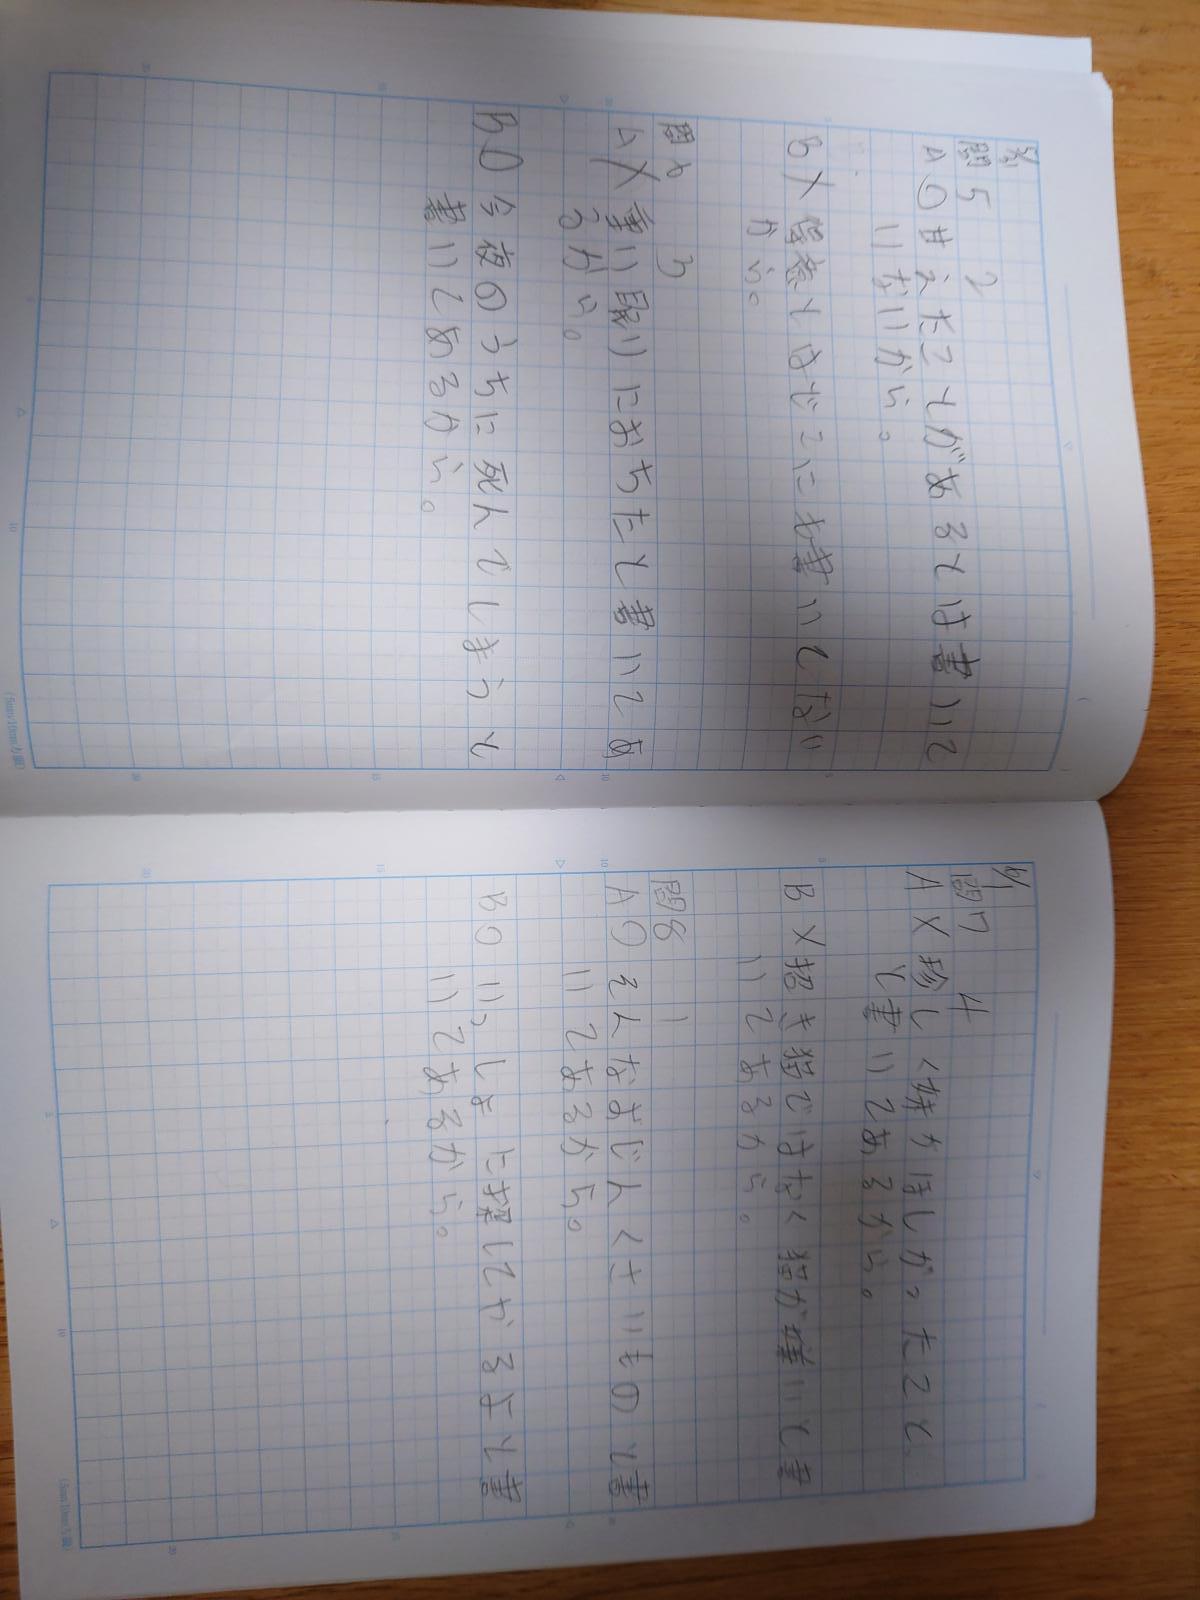 5/31
問5 2
A○甘えたことがあるとは書いて
いないから。
B×得意とはどこにも書いてない
から。
問6 3
A×重い眠りにおちたと書いてあ
るから。
B○今夜のうちに死んでしまうと
書いてあるから。
6/1
問7 4
A×珍しく姉がほしがったこと
と書いてあるから。
B×招き猫ではなく猫が嫌いと書
いてあるから。
問8 1
A○そんなまじんくさいものと書
いてあるから。
B○いっしょに探してやるよと書
いてあるから。
(5mm10mm方眼)
(5mm10mm方眼)